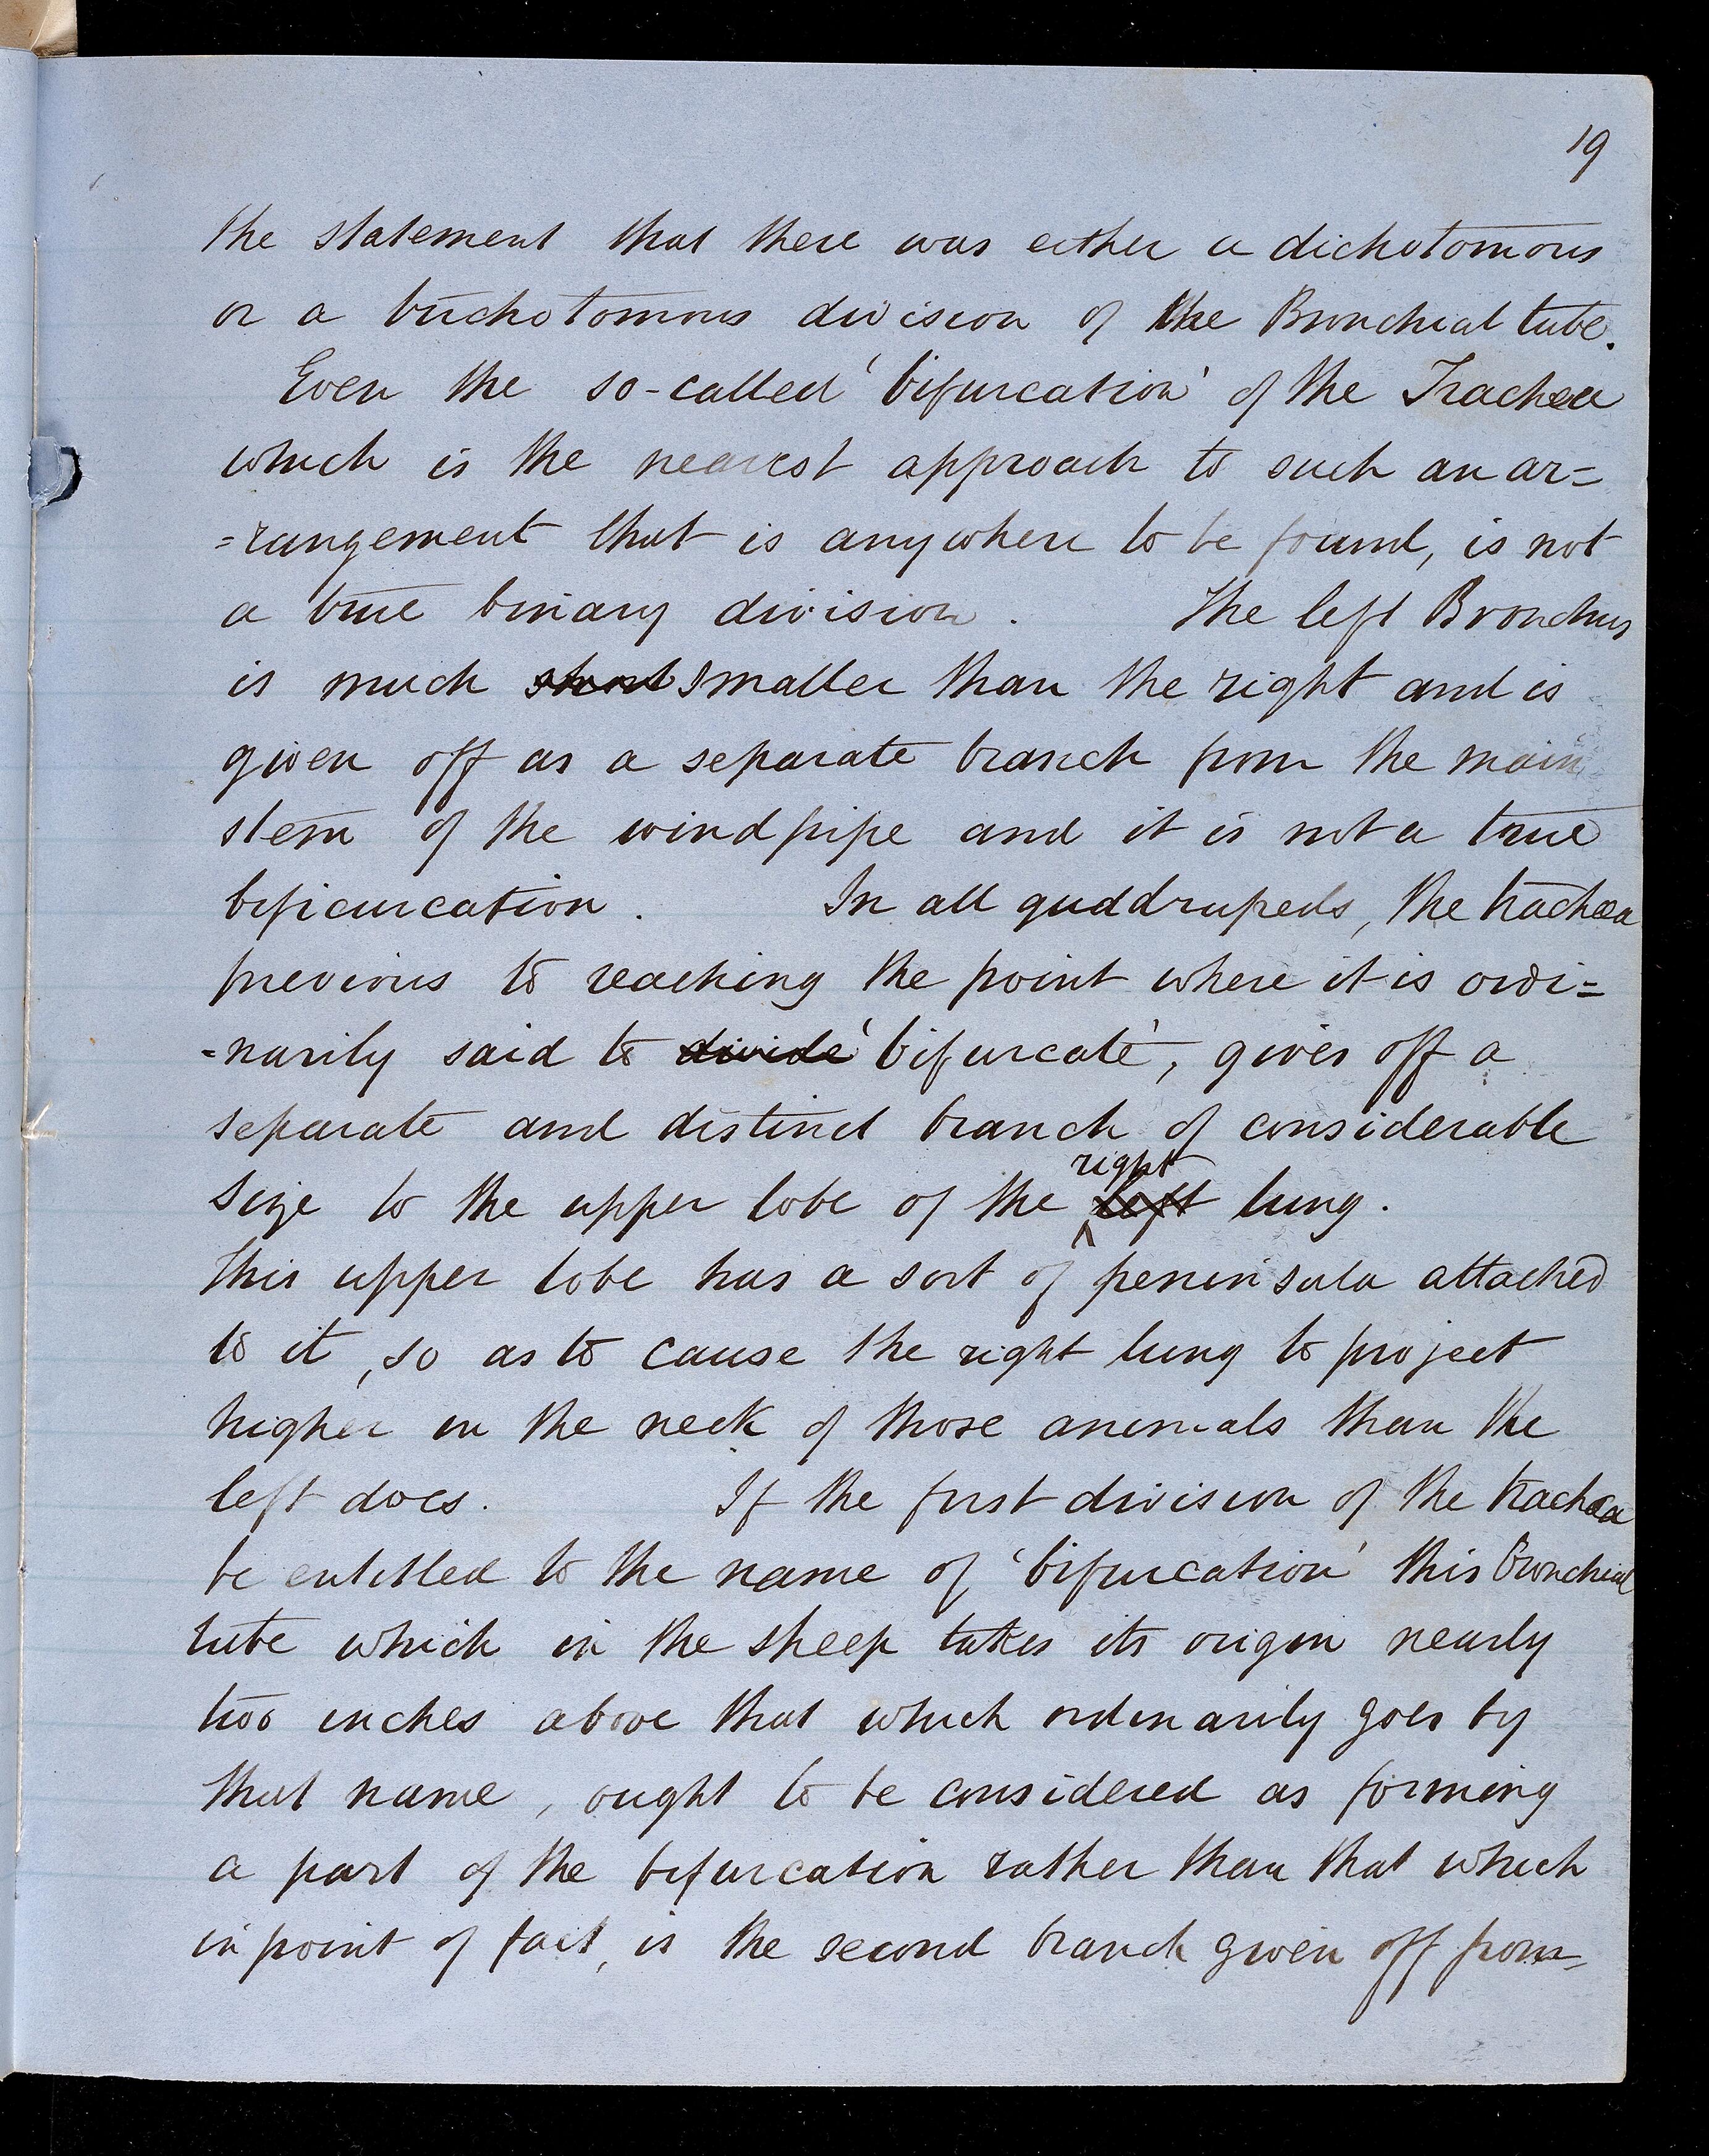 19
the statement that there was either a dichotomous
or a trichotomous division of the Bronchial tube.
Even the so-called 'bifurcation' of the Trachea
which is the nearest approach to such an ar=
=rangement that is anywhere to be found, is not
a true binary division. The left Bronchus
is much smaller than the right and is
given off as a separate branch from the main
stem of the windpipe and it is not a true
bificurcation. In all quddrupeds, the trachea
previous to reaching the point where it is ordi=
=narily said to divide 'bifurcate', gives off a
separate and distinct branch of considerable
right
size to the upper lobe of the left lung.
This upper lobe has a sort of peninsula attached
to it, so as to cause the right lung to project
higher in the neck of those animals than the
left does. If the first division of the trachea
be entitled to the name of 'bifurcation' this bronchial
tube which in the sheep takes its origin nearly
two inches above that which ordinarily goes by
that name, ought to be considered as forming
a part of the bifurcation rather than that which
in point of fact, is the second branch given off from=